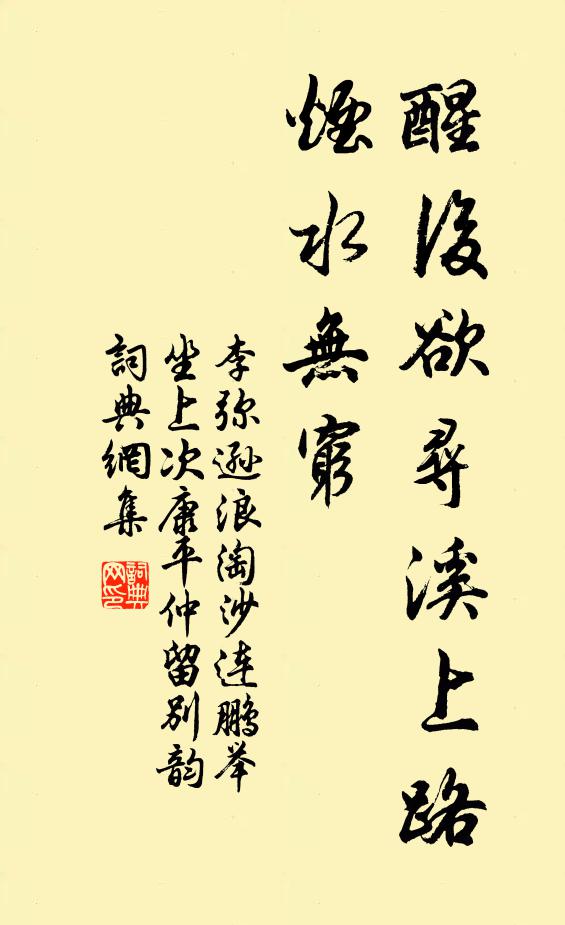 醒後欲尋溪上路
煙水無窮
李弥遜浪淘沙連鵬举
坐上次康平仲留别韵
詞典網集
詞典網印